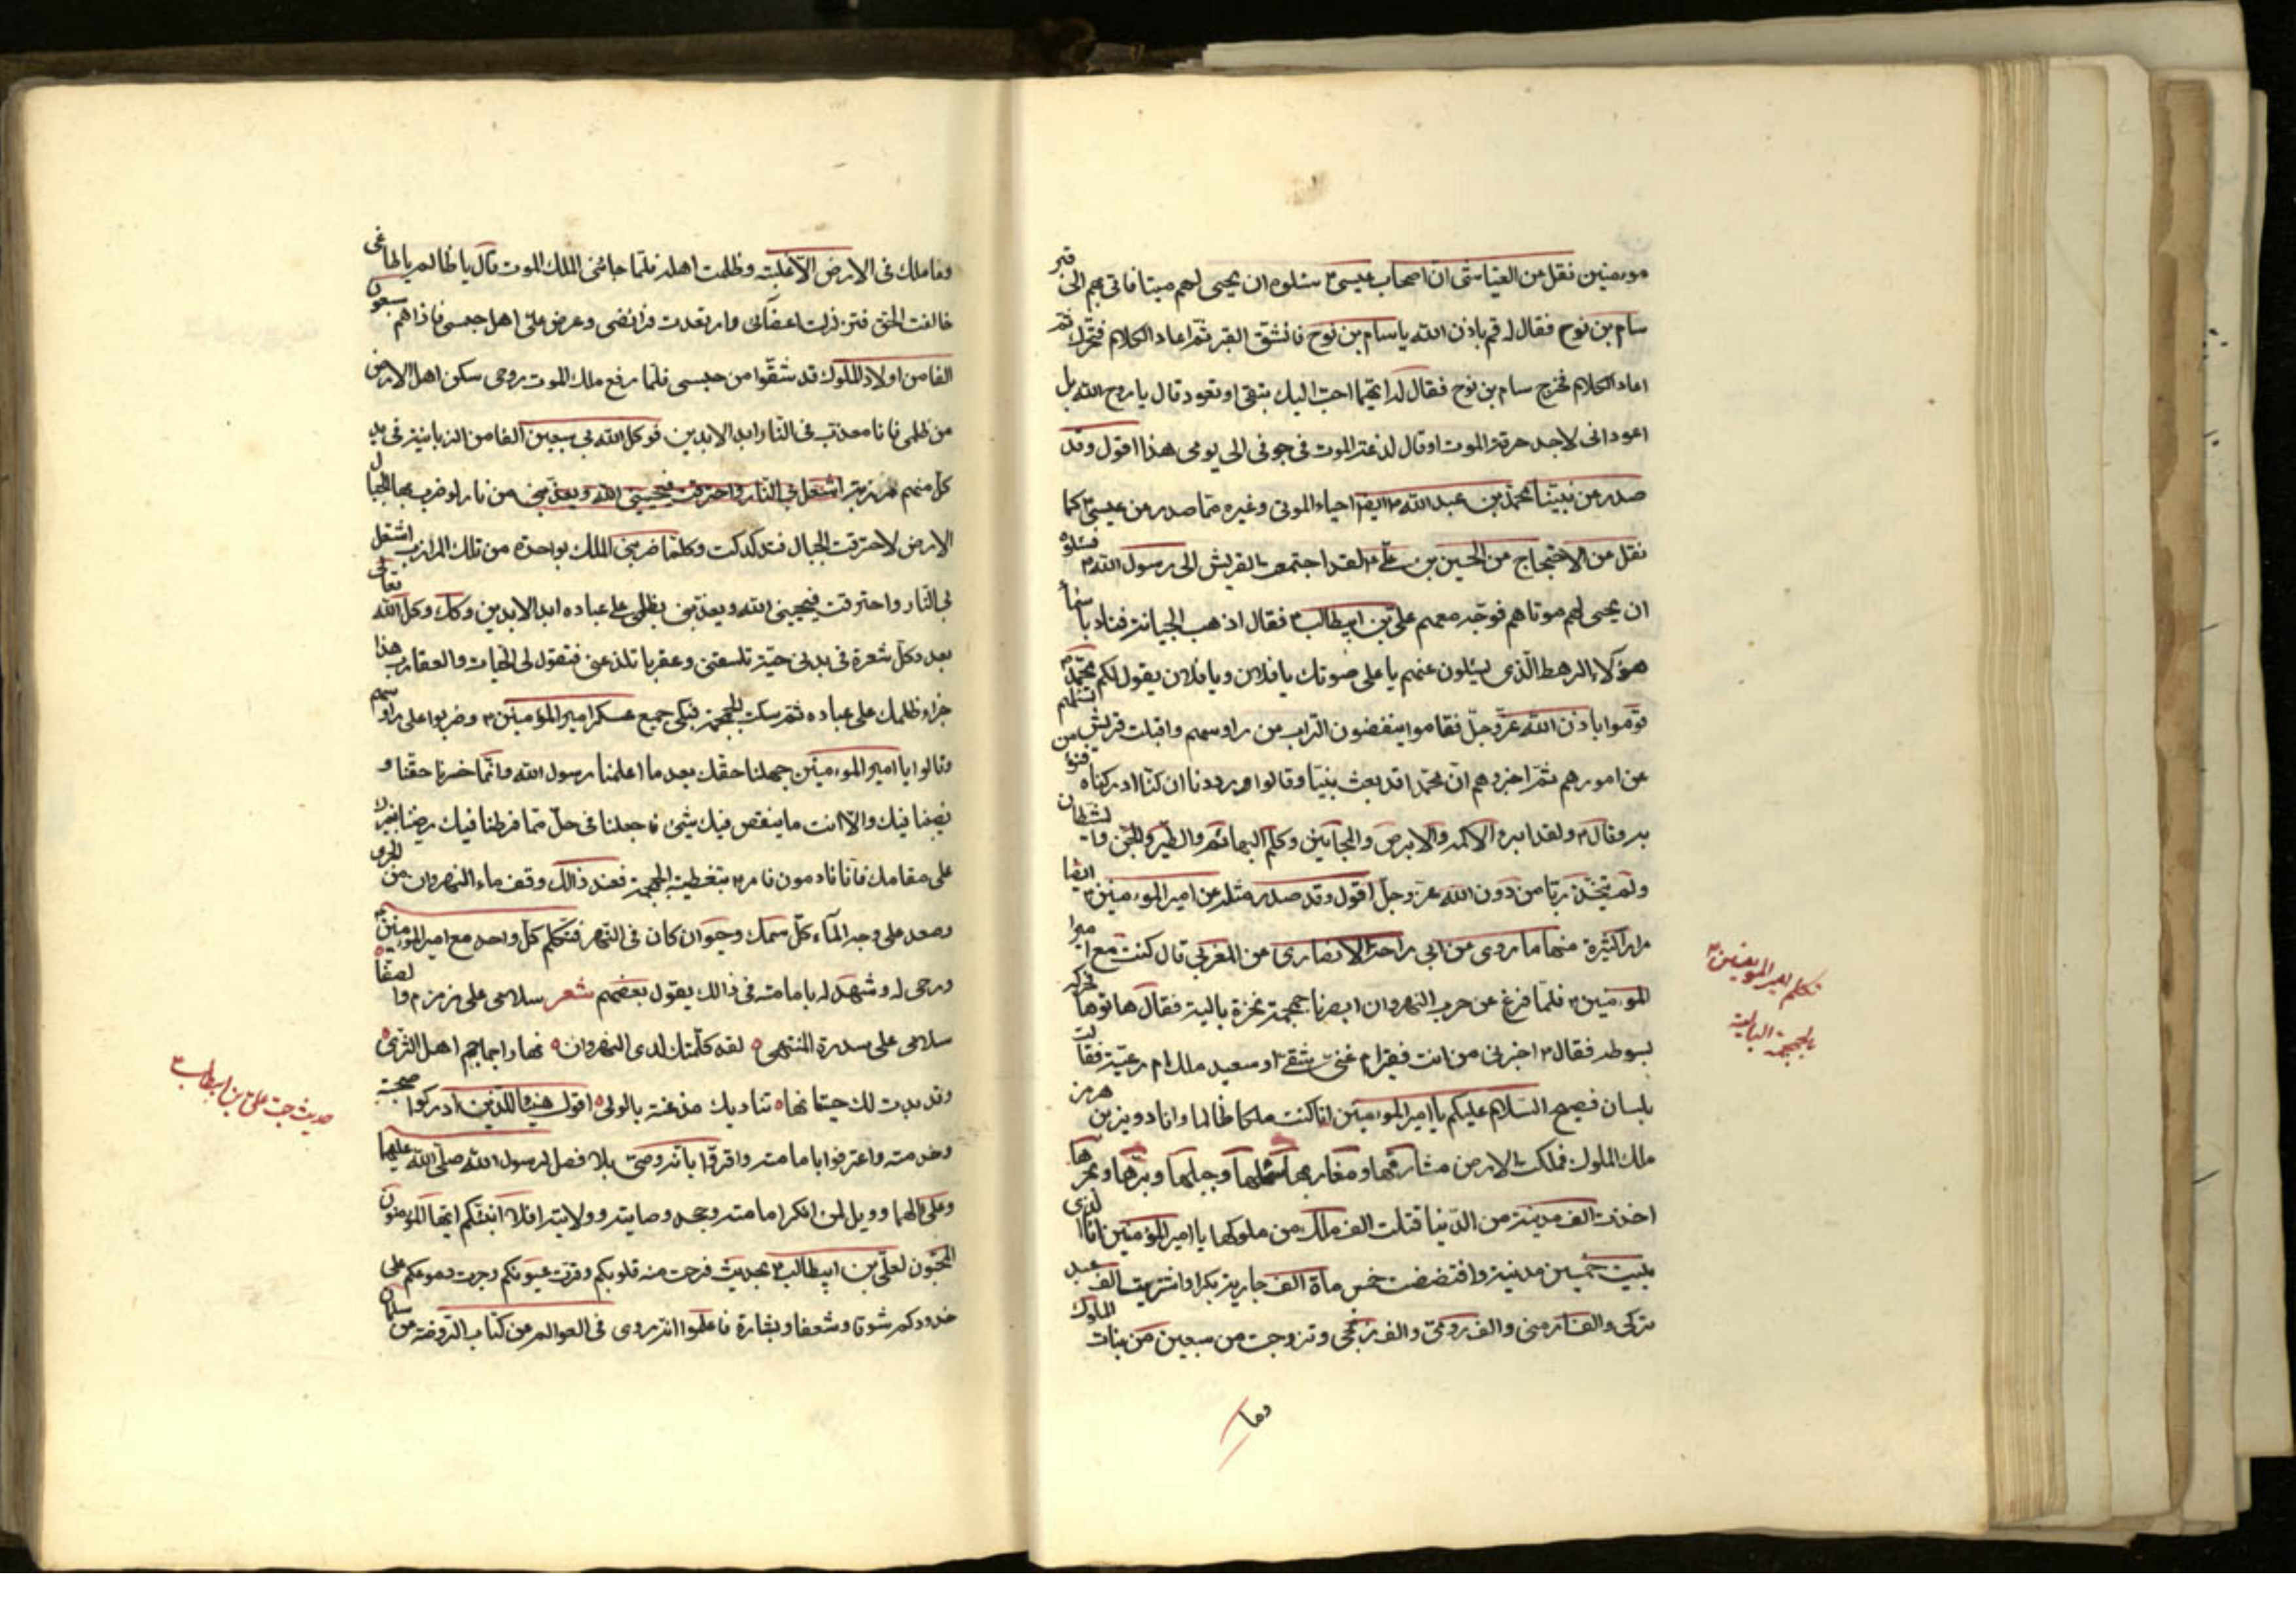 مومنين نقل من العياشى انّ اصحاب عيسى ۴ سئلوه ان يحيى لهم ميتا فاتى بهم الى قبر
سام بن نوح فقال له قم باذن الله يا سام بن نوح فانشق القبر ثمّ اعاد الكلام فتحرك ثمّ
اعاد الكلام فخرج سام بن نوح فقال له ايّهما احبّ اليك تبقى او تعود قال يا روح الله بل
اعود انى لاجد حرقة الموت او قال لذعة الموت فى جوفى الى يومى هذا اقول وقد
صدر من نبيّنا محمّد بن عبد الله ۴ ايضا احياء الموتى وغيره ممّا صدر من عيسى ۴ كما
نقل من الاحتجاج من الحسين بن علىّ ۴ لقد اجتمعت القريش الى رسول الله ۴ فسئلوه
ان يحيى لهم موتاهم فوجّه معهم علىّ بن ابيطالب ۴ فقال اذهب الجبانة فناد باسماء
هؤلاء الرهط الّذى يسئلون عنهم يا على صوتك يا فلان ويا فلان يقول لكم محمّد ۴
قوموا باذن الله عزّ وجلّ فقاموا ينفضون التراب من راوسهم واقبلت قريش تسئلهم
عن امورهم ثمّ اخبروهم انّ محمّدا قد بعث نبيّا وقالوا وددنا ان كنّا ادركناه فنؤمن
به وقال ۴ ولقد ابرء الاكمه والابرص والمجانين وكلّم البهائم والطّير والجنّ والشّيطان
ولم يتخّذ ربّا من دون الله عزّ وجلّ اقول وقد صدر مثله عن امير الموءمنين ۴ ايضا
مرارا كثيرة منها ما روى من ابى راحة الانصارى عن المغربى قال كنت مع امير
الموءمنين ۴ فلمّا فرغ عن حرب النهروان ابصرنا جمجمة نخرة بالية فقال هاتوها فحركه
بسوطه فقال ۴ اخبرنى من انت فقير ام غنى شقى او سعيد ملك ام رعيّة فقالت
بلسان فصيح السّلام عليكم يا امير الموءمنين انا كنت ملكا ظالما وانا دويز بن هرمز
ملك الملوك فملكت الارض مشارقها ومغاربها سهلها وجبلها وبرّها وبحرها
اخذت الف مدينة من الدّنيا قتلت الف ملك من ملوكها يا امير المؤمنين انا الذى
بنيت خمسين مدينة وافتضضت خمس ماة الف جارية بكرا واشتريت الف عبد
تركى والف ارمنى والف رومى والف زنجى وتزوجت من سبعين من بنات الملوك
وما
تكلم امير المومنين ۴
بالجمجمة البالية
وما ملك فى الارض الّا غلبته وظلمت اهله فلمّا جائنى الملك الموت قال يا ظالم يا طاغى
خالفت الحق فتزلزلت اعضائى وارتعدت فرائضى وعرض علىّ اهل حبسى فاذا هم سبعون
الفا من اولاد الملوك قد شقّوا من حبسى فلما رفع ملك الموت روحى سكن اهل الارض
من ظلمى فانا معذّب فى النّار ابد الابدين فوكل الله بى سبعين الفا من الزبانية فى يد
كل منهم مرزبة
الارض لاحترقت الجبال فتدكدكت وكلما ضربنى الملك بواحدة من تلك المرازب اشتعل
بى النّار واحترقت فيحيينى الله ويعذّبنى بظلمى على عباده ابد الابدين وكذلك وكل الله تعالى
بعدد كلّ شعرة فى بدنى حيّة تلسعنى وعقربا تلذعنى فتقول لى الحيات والعقارب هذا
جزاء ظلمك على عباده ثم سكتت الجمجمة فبكى جميع عسكر امير المؤمنين ۴ وضربوا على راوسهم
وقالوا يا امير الموءمنين جهلنا حقّك بعد ما اعلمنا رسول الله وانّما خسرنا حقّنا و
نصيبنا فيك والا انت ما ينقص فيك شئ فاجعلنا فى حلّ ممّا فرطنا فيك ورضينا بغيرك
على مقامك فانّا نادمون فامر ۴ بتغطية الجمجمة فعند ذالك وقف ماء النهروان من الجرى
وصعد على وجه المآء كلّ سمك وحيوان كان فى النّهر فتكلم كلّ واحد مع امير الموءمنين ۴
ودعى له وشهد له بامامته فى ذالك يقول بعضهم شعر سلامى على زمزم والصّفا
سلامى على سدرة المنتهى لقد كلّمتك لدى النهروان نهارا جماجم اهل الثّرى
وقد بدرت لك حيتانها تناديك مذعنة بالولى اقول هنيئا للّذين ادركوا صحبته
وخدمته واعترفوا بامامته واقرّوا بانّه وصىّ بلا فصل لرسول الله صلّى الله عليهما
وعلى آلهما وويل لمن انكر امامته وجحد وصايته وولايته افلا انبئكم ايّها المؤمنون
المحبّون لعلىّ بن ابيطالب ۴ بحديث فرحت منه قلوبكم وقرّت عيونكم وجرت دموعكم على
خدودكم شوقا وشعفا وبشارة فاعلموا انه روى فى العوالم من كتاب الروضة من سلمان
حديث حبّ علىّ بن ابيطالب ۴